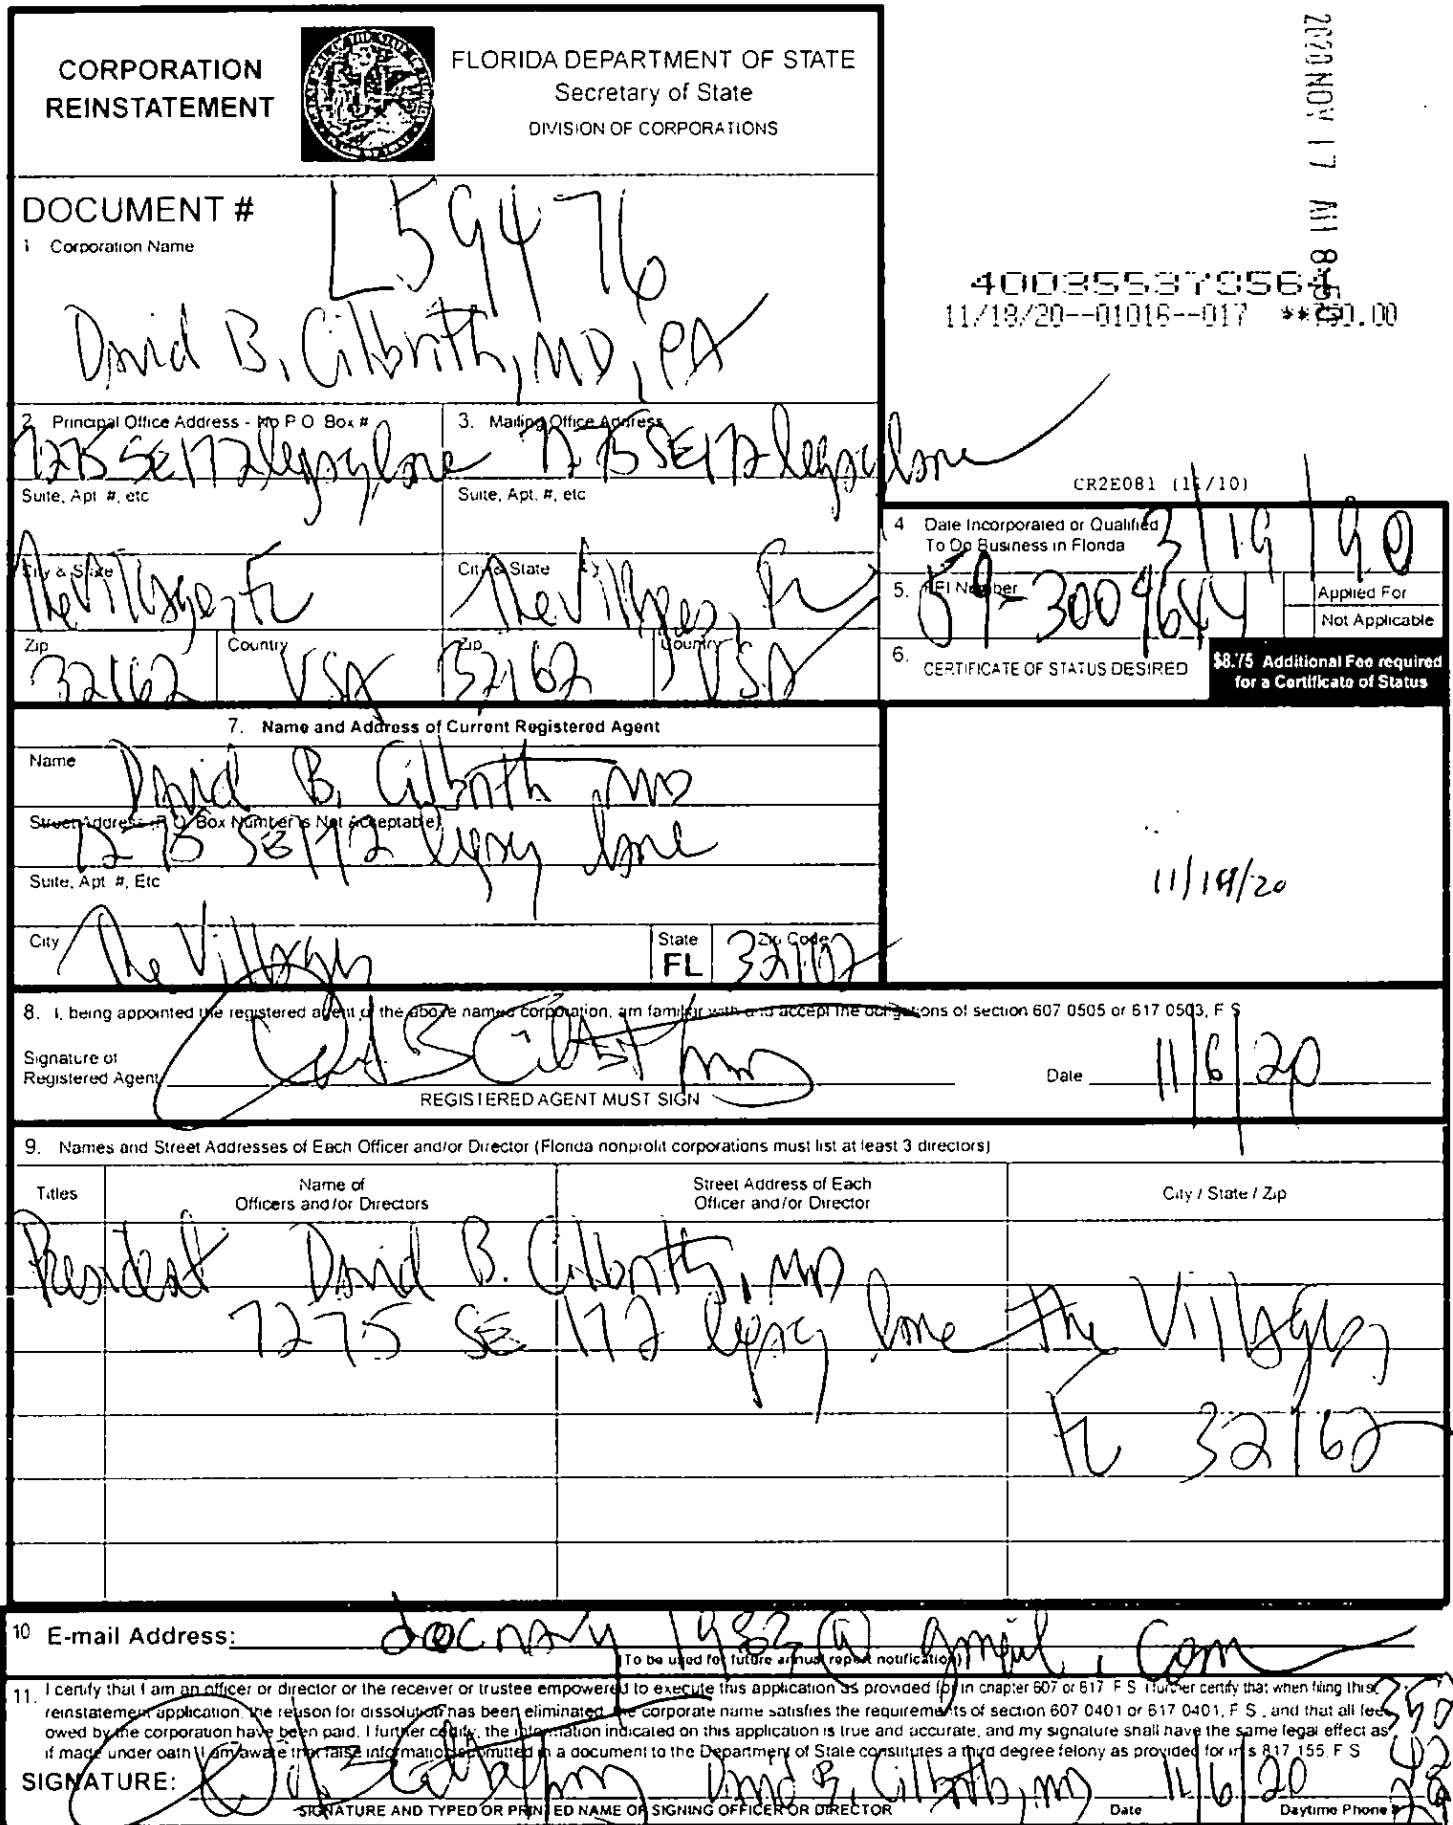 CORPORATION
REINSTATEMENT
FLORIDA DEPARTMENT OF STATE
Secretary of State
DIVISION OF CORPORATIONS
2020 NOV 17 AM 8:50
DOCUMENT # L59476
1 Corporation Name
David B. Gilbrith, MD, PA
11/18/20--01016--017
2. Principal Office Address - No P O Box #
7275 SE 172 legacy lane
Suite, Apt #, etc
City & State
The Villages, FL
Zip
32162
Country
USA
3. Mailing Office Address
7275 SE 172 legacy lane
Suite, Apt. #, etc
City & State
The Villages, FL
Zip
32162
Country
USA
CR2E081 (11/10)
4 Date Incorporated or Qualified
To Do Business in Florida
3/19/90
5. FEI Number
59-3009644
Applied For
Not Applicable
6. CERTIFICATE OF STATUS DESIRED
$8.75 Additional Fee required
for a Certificate of Status
7. Name and Address of Current Registered Agent
Name
David B. Gilbrith MD
Street Address (P.O. Box Number is Not Acceptable)
7275 SE 172 legacy lane
Suite, Apt #, Etc
City
The Villages
State
FL
Zip Code
32162
8. I, being appointed the registered agent of the above named corporation, am familiar with and accept the obligations of section 607 0505 or 617 0503, F S
Signature of
Registered Agent
REGISTERED AGENT MUST SIGN
Date 11/6/20
9. Names and Street Addresses of Each Officer and/or Director (Florida nonprofit corporations must list at least 3 directors)
Titles
Name of
Officers and/or Directors
Street Address of Each
Officer and/or Director
City / State / Zip
President David B. Gilbrith, MD
7275 SE 172 legacy lane the Villages,
FL 32162
10 E-mail Address: docnavy1983@gmail.com
(To be used for future annual report notification)
11. I certify that I am an officer or director or the receiver or trustee empowered to execute this application as provided for in chapter 607 or 617 F S I further certify that when filing this
reinstatement application, the reason for dissolution has been eliminated, the corporate name satisfies the requirements of section 607 0401 or 617 0401, F S, and that all fees
owed by the corporation have been paid. I further certify, the information indicated on this application is true and accurate, and my signature shall have the same legal effect as
if made under oath I am aware that false information submitted in a document to the Department of State constitutes a third degree felony as provided for in s 817 155, F S
SIGNATURE: David B. Gilbrith, MD 11/6/20
SIGNATURE AND TYPED OR PRINTED NAME OF SIGNING OFFICER OR DIRECTOR
Date
Daytime Phone #